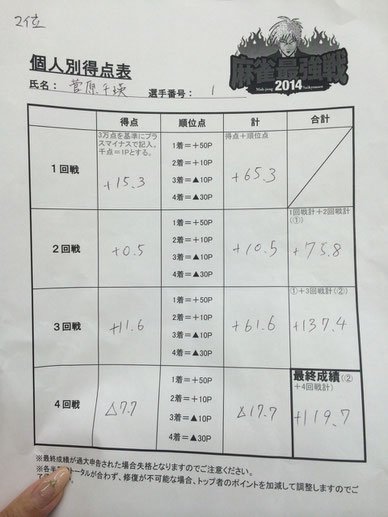 2位
個人別得点表
麻雀最強戦
Mah-jong Saikyousen
2014
氏名： 菅原千瑛 選手番号： 1
得点 順位点 計 合計
1回戦
3万点を基準にプラ
スマイナスで記入。
千点＝1Pとする。
+15.3
1着＝＋50P
2着＝＋10P
3着＝▲10P
4着＝▲30P
得点＋順位点
+65.3
2回戦
+0.5
1着＝＋50P
2着＝＋10P
3着＝▲10P
4着＝▲30P
+10.5
1回戦計＋2回戦計
(①)
+75.8
3回戦
+11.6
1着＝＋50P
2着＝＋10P
3着＝▲10P
4着＝▲30P
+61.6
①＋3回戦計(②)
+137.4
4回戦
△7.7
1着＝＋50P
2着＝＋10P
3着＝▲10P
4着＝▲30P
△17.7
最終成績(②
＋4回戦計)
+119.7
※最終成績が過大申告された場合失格となりますのでご注意ください。
※各半
トータルが合わず、修復が不可能な場合、トップ者のポイントを加減して調整しますのでご